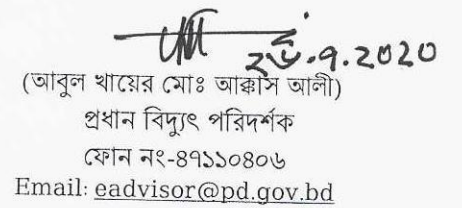 ২৬.৭.2020
(আবুল খায়ের মোঃ আক্কাস আলী)
প্রধান বিদ্যুৎ পরিদর্শক
ফোন নং-৪৭১১০৪০৬
Email: eadvisor@pd.gov.bd